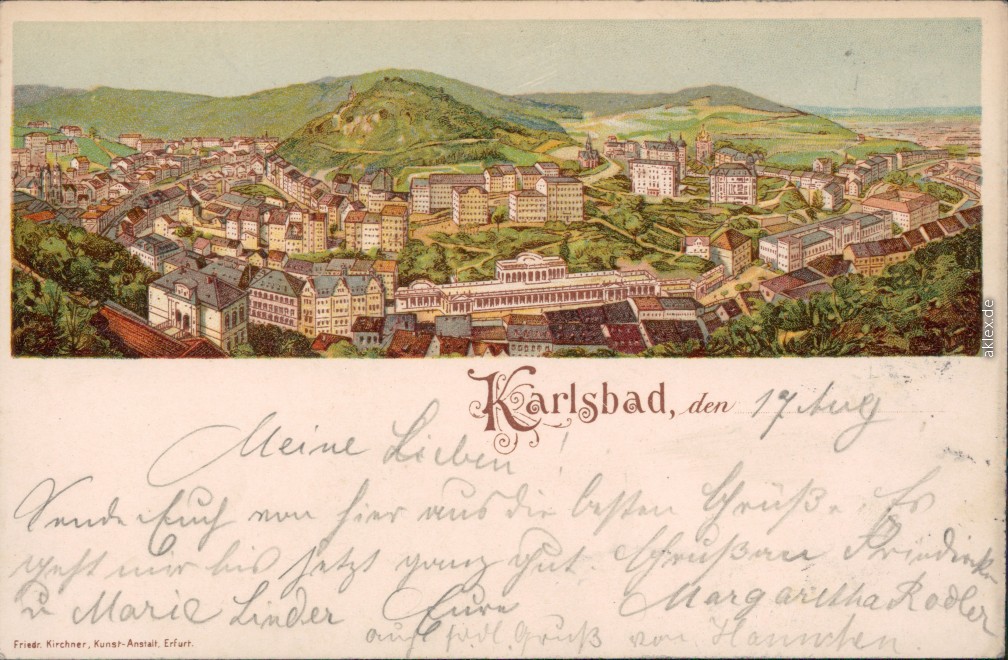 Karlsbad, den 17 Aug
Meine Lieben!
Sende Euch von hier aus die besten Grüße. Es
geht mir bis jetzt ganz gut. Gruß an
u Marie Linder Eure Margaretha Rodler
auch frdl. Gruß von Hannchen.
Friedr. Kirchner, Kunst-Anstalt, Erfurt.
aklex.de